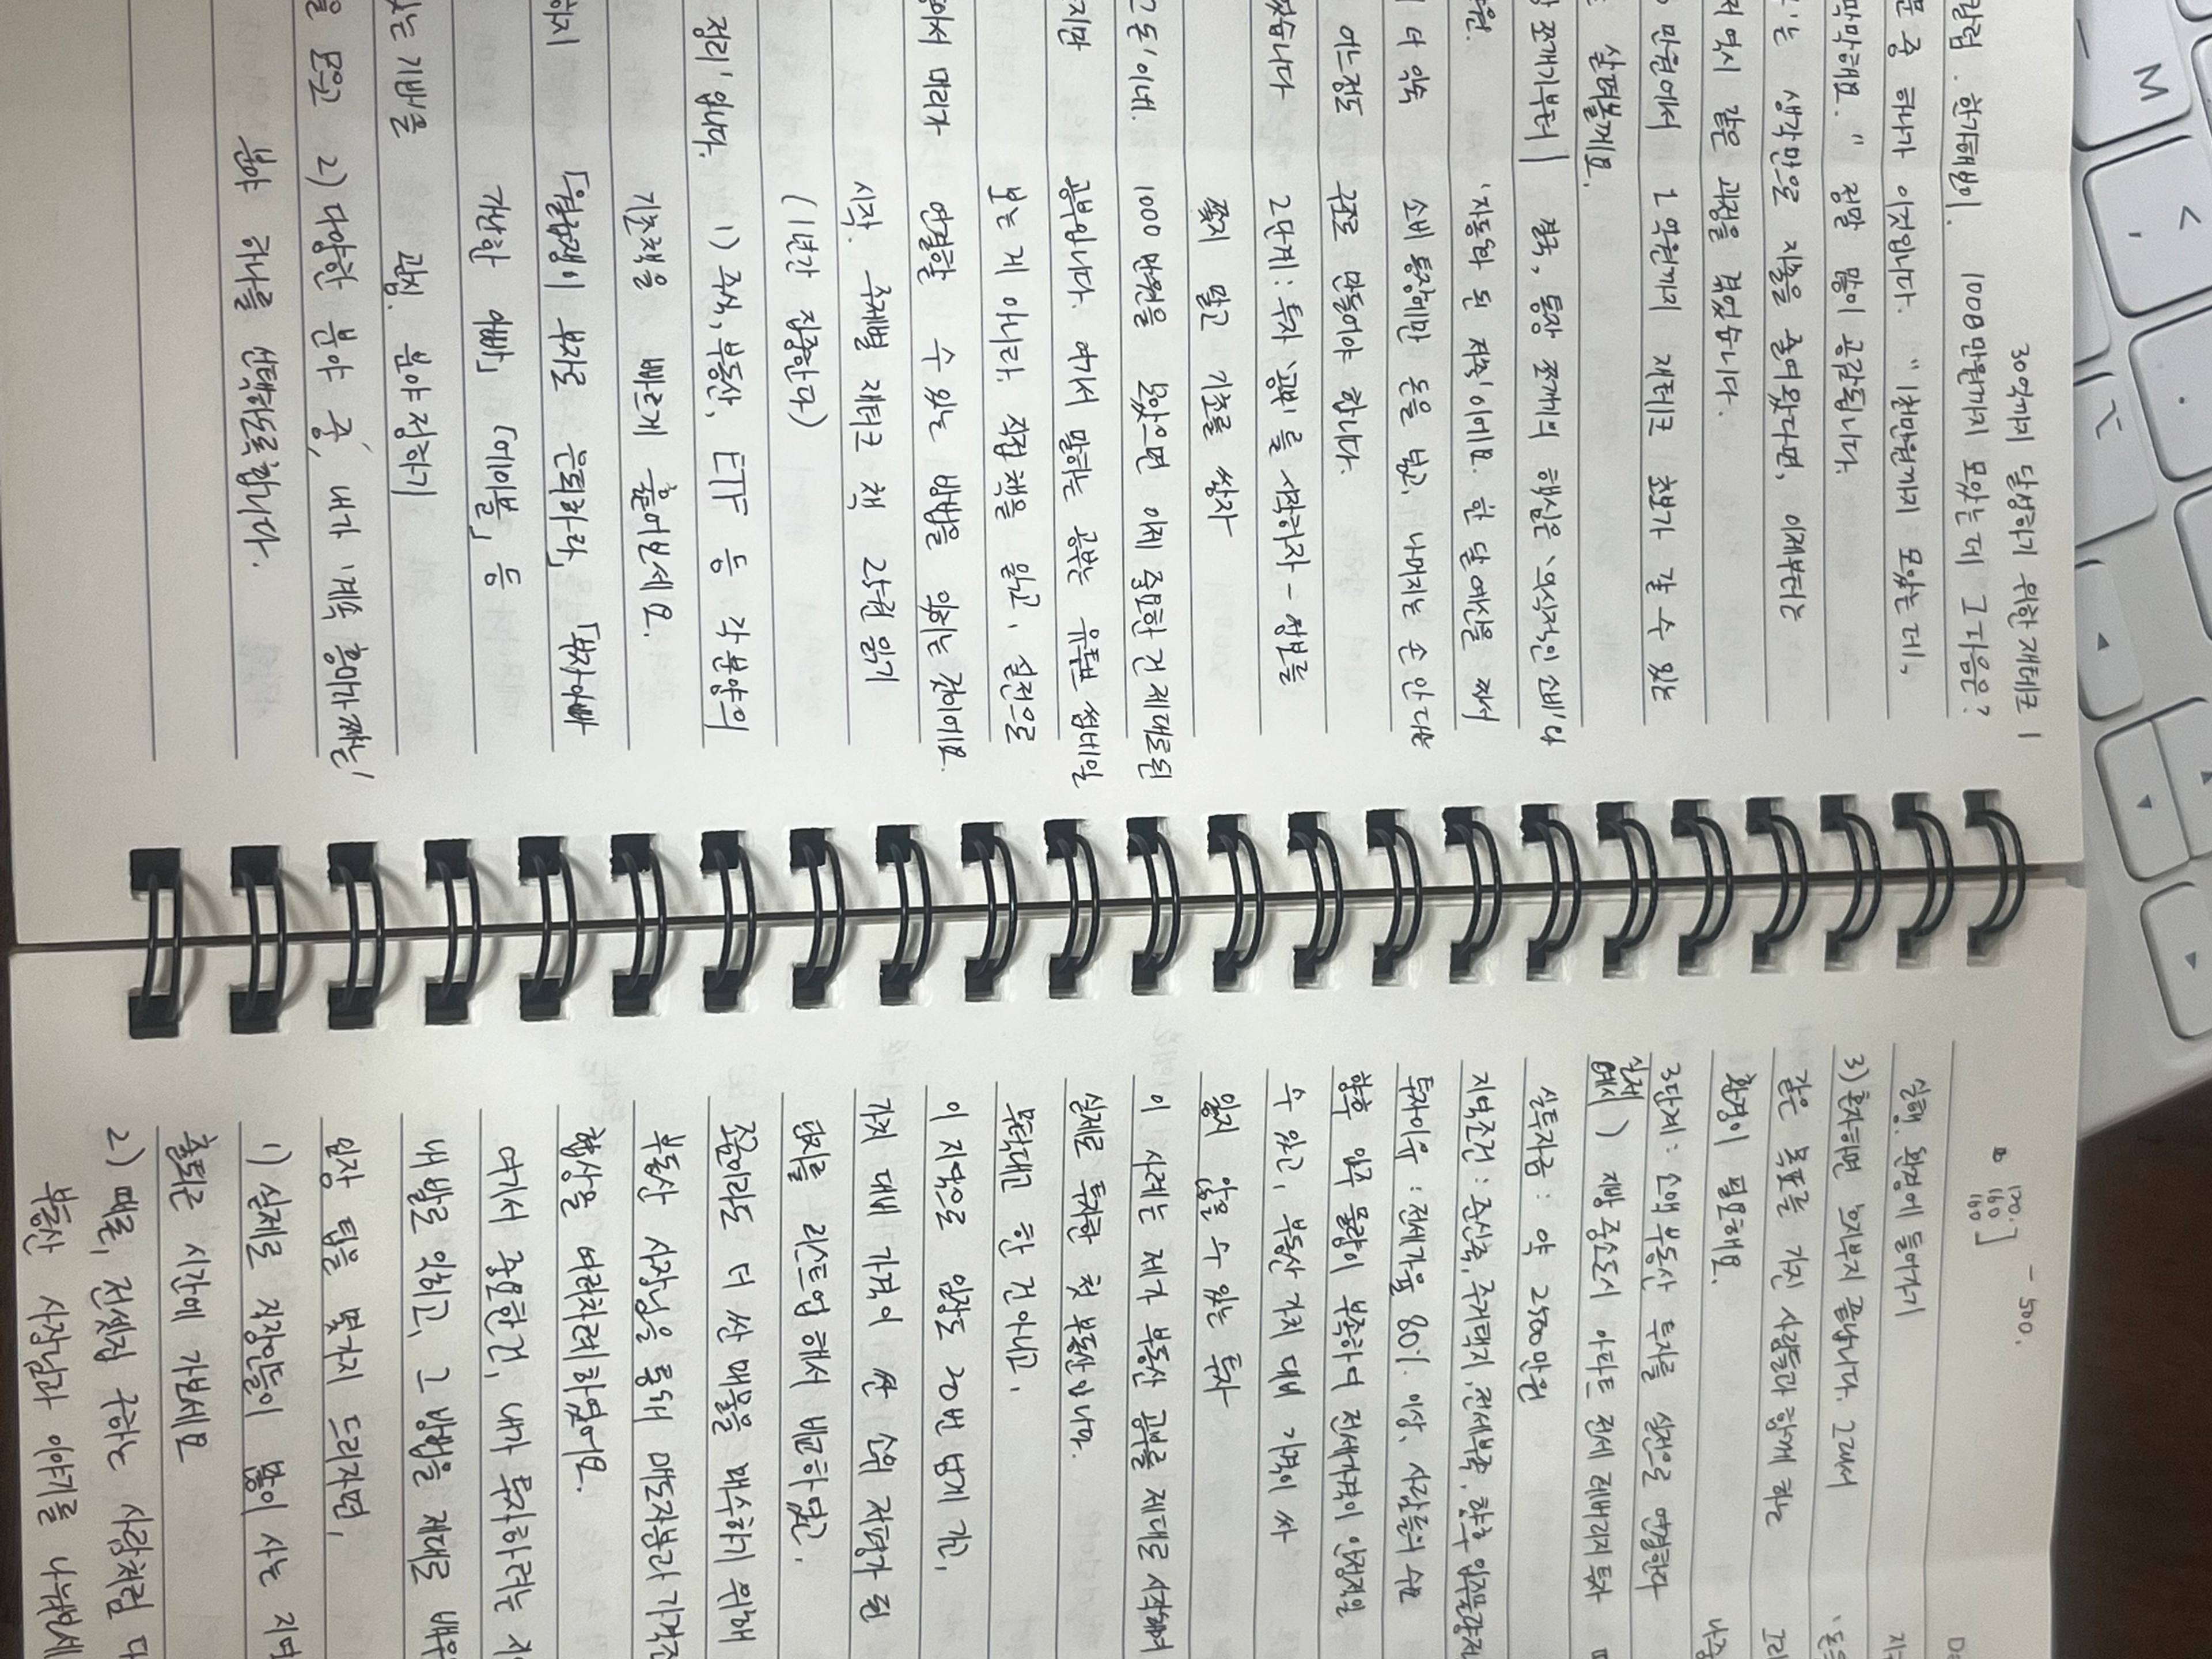 30억까지 달성하기 위한 재테크 1
1000만원까지 모았는데 그 다음은?
문 중 하나가 이것입니다. "1천만원까지 모았는데,
막막해요." 정말 많이 공감됩니다.
는 생각만으로 지출을 줄여왔다면, 이제부터는
저 역시 같은 과정을 겪었습니다.
만원에서 2억원까지 재테크 초보가 갈 수 있는
살펴볼게요.
쪼개기부터 | 결국, 통장 쪼개기의 핵심은 '의식적인 소비'나
만원. '자동화 된 저축'이에요. 한 달 예산을 짜서
더 익숙 소비 통장에만 돈을 넣고, 나머지는 손 안 대는
어느정도 구조로 만들어야 합니다.
했습니다 2단계: 투자 '공부'를 시작하자 - 장비를
쫓지 말고 기초를 쌓자
이네. 1000만원을 모았으면 이제 중요한 건 제대로된
지만 공부입니다. 여기서 말하는 공부는 유튜브 썸네일
보는 게 아니라. 직접 책을 읽고, 실전으로
서 머리가 연결할 수 있는 방법을 익히는 것이에요.
시작. 주제별 재테크 책 2~3권 읽기
(1년간 집중한다)
정리' 입니다. 1) 주식, 부동산, ETF 등 각 분야의
기초책을 빠르게 훑어보세요.
하지 「월급쟁이 부자로 은퇴하라」, 「부자아빠
가난한 아빠」, 「레이블」 등
있는 기반을 과정. 분야 정하기
을 모으고 2) 다양한 분야 중, 내가 '계속 흥미가 가는'
분야 하나를 선택하도록합니다.
170.
160 ] - 500.
160
실행. 환경에 들어가기
3) 혼자하면 흐지부지 끝납니다. 그래서
같은 목표를 가진 사람들과 함께 하는
환경이 필요해요.
3단계: 소액 부동산 투자를 실전으로 연결한다
실제
예시) 지방 중소도시 아파트 전세 레버리지 투자
실투자금: 약 2500만원
지역조건: 준신축, 주거택지, 전세부족, 향후 입주물량적
투자이유: 전세가율 80% 이상, 사람들의 수요
향후 입주 물량이 부족하여 전세가격이 안정적일
수 있고, 부동산 가치 대비 가격이 싸
잃지 않을 수 있는 투자
이 사례는 제가 부동산 공부를 제대로 시작하며
실제로 투자한 첫 부동산입니다.
무턱대고 한 건 아니고,
이 지역으로 임장도 20번 넘게 가고,
가치 대비 가격이 싼 순위 저평가 된
단지를 리스트업 해서 비교하였고.
조금이라도 더 싼 매물을 매수하기 위해
부동산 사장님을 통해 매도자분과 가격
협상을 여러차례 하였어요.
여기서 중요한건, 내가 투자하려는
내 발로 익히고, 그 방법을 제대로 배워
임장 팁을 몇가지 드리자면,
1) 실제로 직장인들이 많이 사는
출퇴근 시간에 가보세요
2) 때론, 전셋집 구하는 사람처럼
부동산 사장님과 이야기를 나눠보세